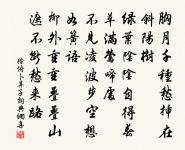 胸中千種愁掛在
斜陽樹
綠葉陰陰自得春
草滿鶯啼處
不見凌波步空想
如簧語
柳外重重疊疊山
遮不斷愁來路
徐俯卜算子